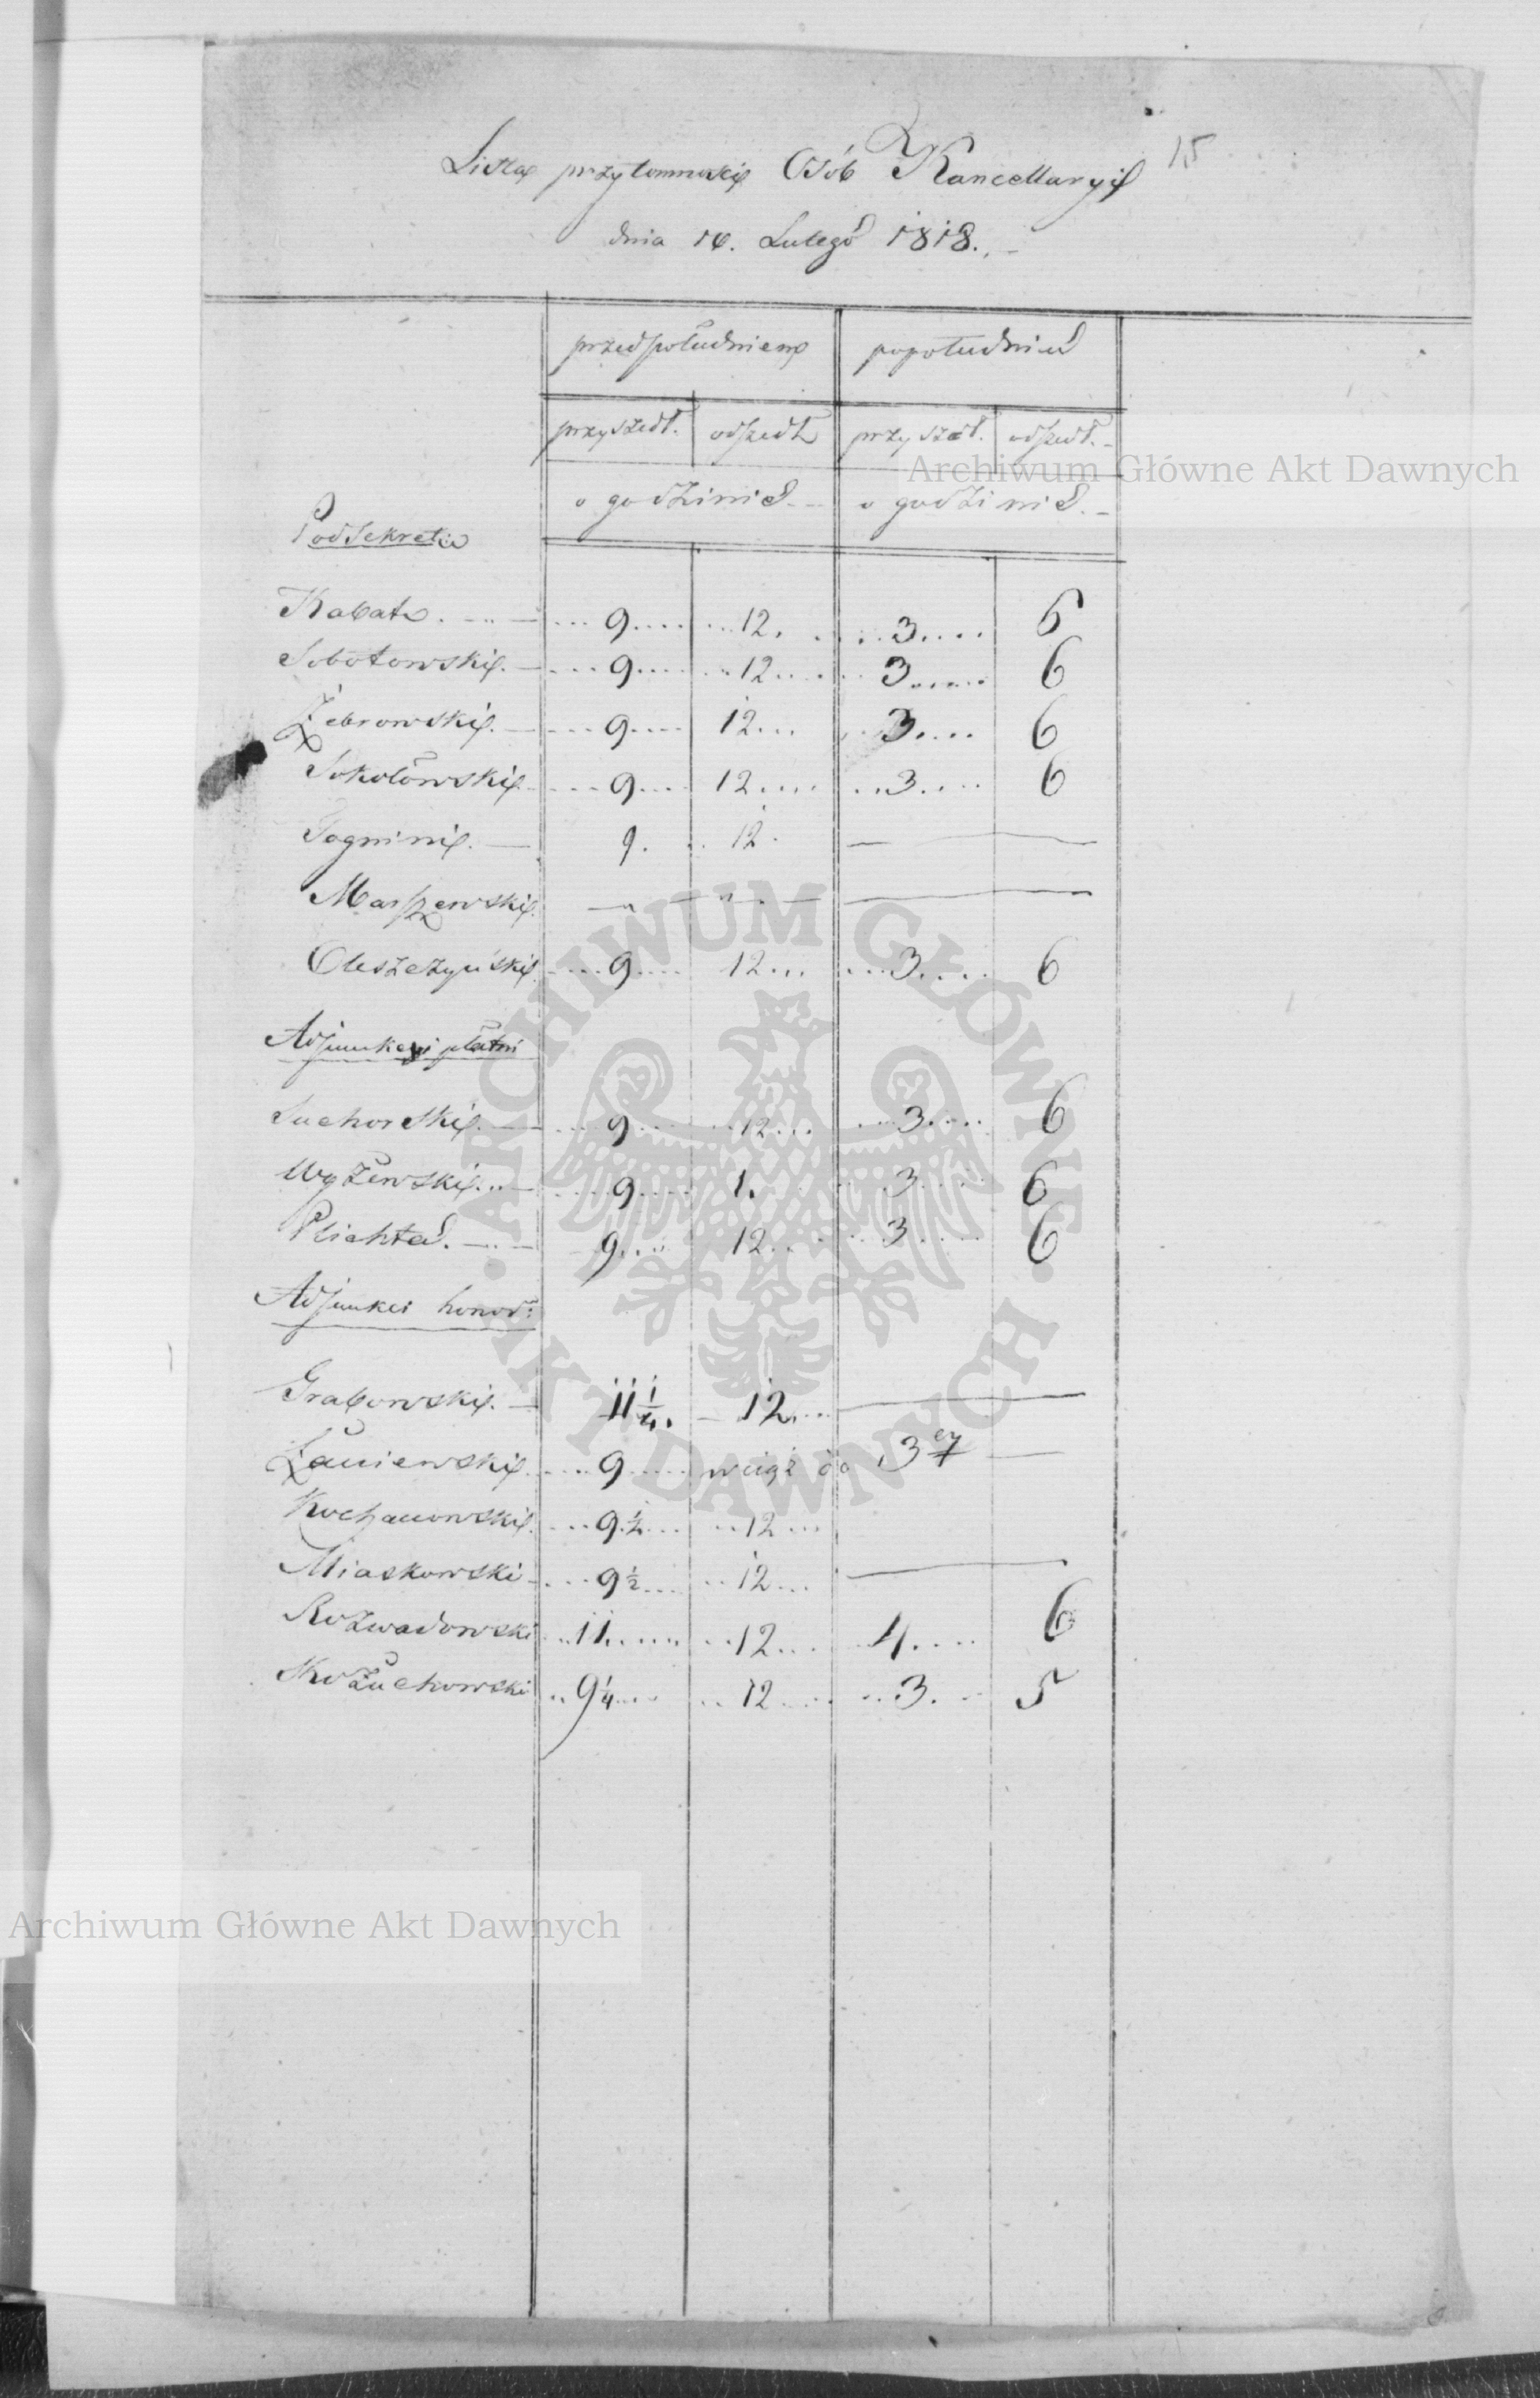 15
Lista przytomności Osób Kancellaryi
dnia 16. Lutego 1818.
przedpołudniem popołudniu
przyszedł. odszedł przyszedł. odszedł.
o godzinie o godzinie.
Podsekreta
Kabat 9 12. 3 6
Sobotowski. 9 12 3 6
Żebrowski. 9 12 3 6
Sokołowski 9 12 3 6
Tognini. 9. 12. —
Marszewski. — " — " — —
Oleszczyński. 9 12 3 6
Adjunkci płatni
Suchorski. 9 12 3 6
Wyżewski. 9 1. 3 6
Plichta. 9 12 3 6
Adjunkci honor:
Grabowski. — 11 1/4. — 12 —
Łaniewski. 9 wciąż do 3ey —
Kochanowski. 9 1/2 12
Miaskowski 9 1/2 12 —
Rozwadowski 11 12 4 6
Kożuchowski 9 1/4 12 3. 5
Archiwum Główne Akt Dawnych
ARCHIWUM GŁÓWNE AKT DAWNYCH
Archiwum Główne Akt Dawnych